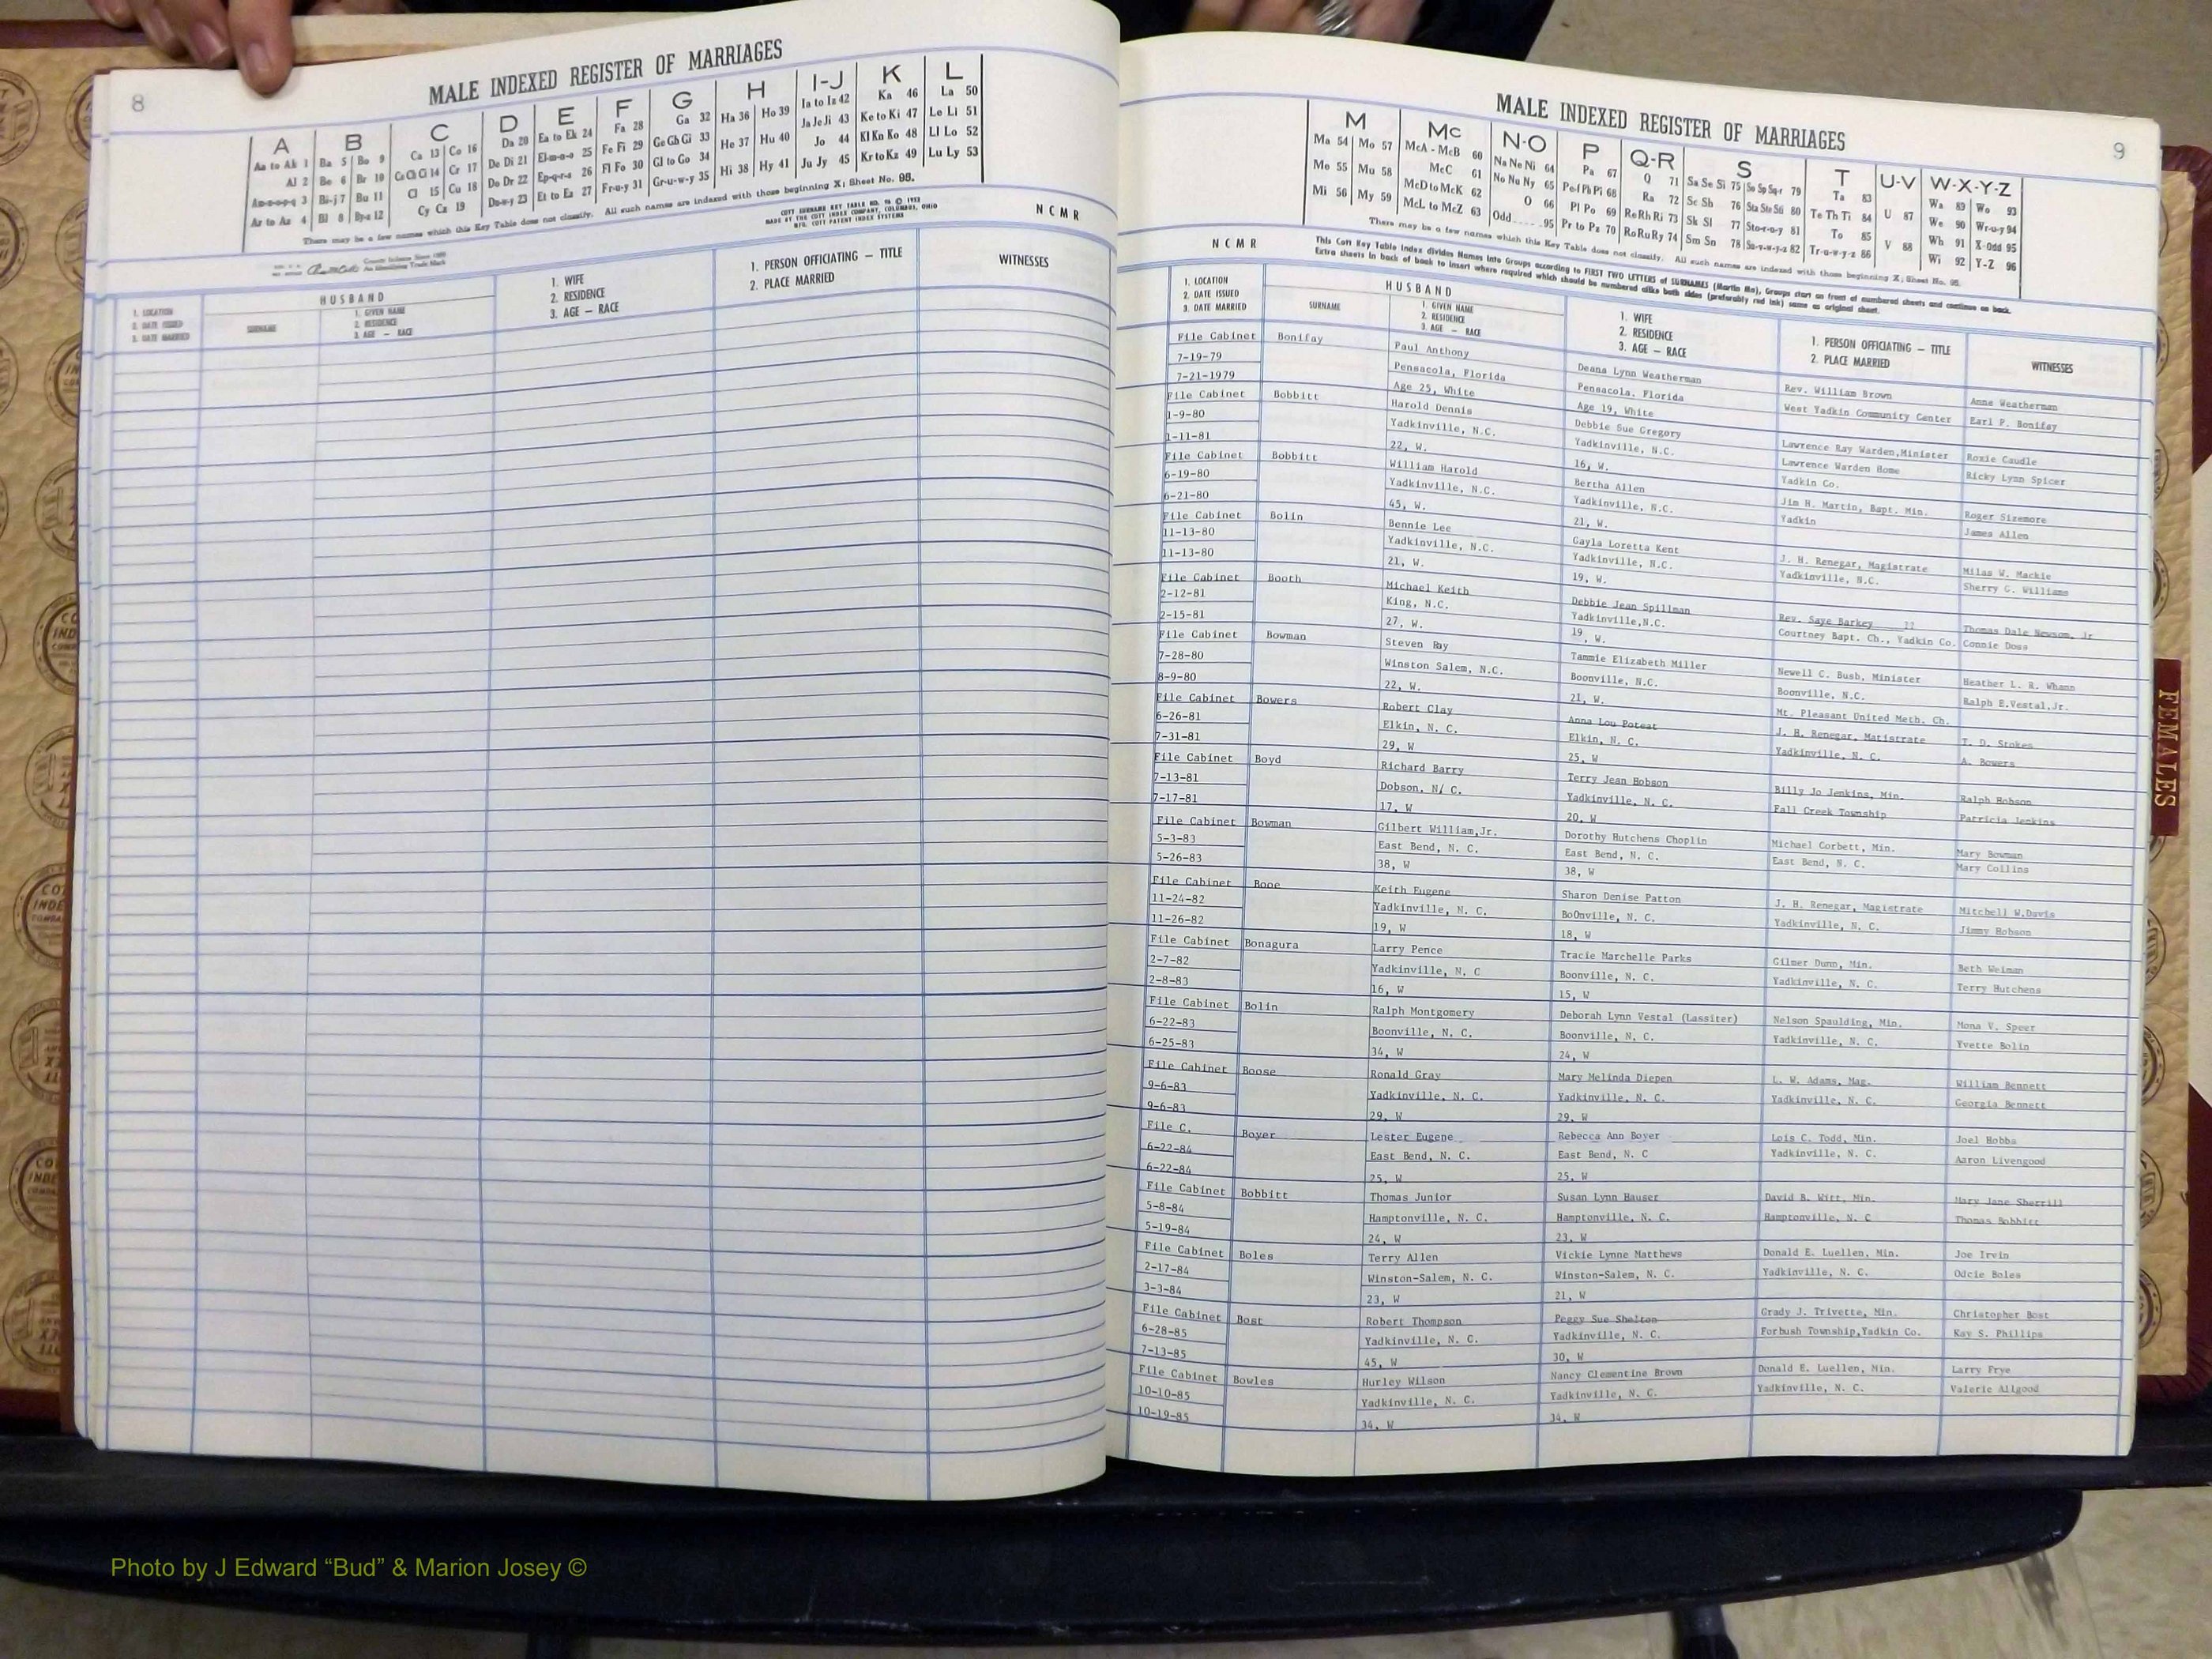 8
MALE INDEXED REGISTER OF MARRIAGES
A B C D E F G H I-J K L
Aa to Ak 1 Ba 5 Bo 9 Ca 13 Co 16 Da 20 Ea to Ek 24 Fa 28 Ga 32 Ha 36 Ho 39 Ia to Iz 42 Ka 46 La 50
Al 2 Be 6 Br 10 Ce Ch Ci 14 Cr 17 De Di 21 El-m-n-o 25 Fe Fi 29 Ge Gh Gi 33 He 37 Hu 40 Ja Je Ji 43 Ke to Ki 47 Le Li 51
Am-n-o-p-q 3 Bi-j 7 Bu 11 Cl 15 Cu 18 Do Dr 22 Ep-q-r-s 26 Fl Fo 30 Gl to Go 34 Hi 38 Hy 41 Jo 44 Kl Kn Ko 48 Ll Lo 52
Ar to Az 4 Bl 8 By-z 12 Cy Cz 19 Du-w-y 23 Et to Ez 27 Fr-u-y 31 Gr-u-w-y 35 Ju Jy 45 Kr to Kz 49 Lu Ly 53
There may be a few names which this Key Table does not classify. All such names are indexed with those beginning X; Sheet No. 95.
COTT SURNAME KEY TABLE NO. 96 © 1952
MADE BY THE COTT INDEX COMPANY, COLUMBUS, OHIO
MFG. COTT PATENT INDEX SYSTEMS
NCMR
1. LOCATION
2. DATE ISSUED
3. DATE MARRIED
HUSBAND
SURNAME
1. GIVEN NAME
2. RESIDENCE
3. AGE — RACE
1. WIFE
2. RESIDENCE
3. AGE — RACE
1. PERSON OFFICIATING — TITLE
2. PLACE MARRIED
WITNESSES
9
MALE INDEXED REGISTER OF MARRIAGES
M Mc N-O P Q-R S T U-V W-X-Y-Z
Ma 54 Mo 57 McA - McB 60 Na Ne Ni 64 Pa 67 Q 71 Sa Se Si 75 So Sp Sq-r 79 Ta 83 U 87 Wa 89 Wo 93
Me 55 Mu 58 McC 61 No Nu Ny 65 Pe-f Ph Pi 68 Ra 72 Sc Sh 76 Sta Ste Sti 80 Te Th Ti 84 V 88 We 90 Wr-u-y 94
Mi 56 My 59 McD to McK 62 O 66 Pl Po 69 Re Rh Ri 73 Sk Sl 77 Sto-r-u-y 81 To 85 Wh 91 X-Odd 95
McL to McZ 63 Odd 95 Pr to Pz 70 Ro Ru Ry 74 Sm Sn 78 Su-v-w-y-z 82 Tr-u-w-y-z 86 Wi 92 Y-Z 96
There may be a few names which this Key Table does not classify. All such names are indexed with those beginning X; Sheet No. 95.
NCMR
This Cott Key Table Index divides Names into Groups according to FIRST TWO LETTERS of SURNAMES (Martin Ma), Groups start on front of numbered sheets and continue on back.
Extra sheets in back of book to insert where required which should be numbered alike both sides (preferably red ink) same as original sheet.
1. LOCATION
2. DATE ISSUED
3. DATE MARRIED
HUSBAND
SURNAME
1. GIVEN NAME
2. RESIDENCE
3. AGE — RACE
1. WIFE
2. RESIDENCE
3. AGE — RACE
1. PERSON OFFICIATING — TITLE
2. PLACE MARRIED
WITNESSES
File Cabinet Bonifay Paul Anthony Deana Lynn Weatherman Rev. William Brown Anne Weatherman
7-19-79 Pensacola, Florida Pensacola. Florida West Yadkin Community Center Earl P. Bonifay
7-21-1979 Age 25, White Age 19, White
File Cabinet Bobbitt Harold Dennis Debbie Sue Gregory Lawrence Ray Warden,Minister Roxie Caudle
1-9-80 Yadkinville, N.C. Yadkinville, N.C. Lawrence Warden Home Ricky Lynn Spicer
1-11-81 22, W. 16, W. Yadkin Co.
File Cabinet Bobbitt William Harold Bertha Allen Jim H. Martin, Bapt. Min. Roger Sizemore
6-19-80 Yadkinville, N.C. Yadkinville, N.C. Yadkin James Allen
6-21-80 45, W. 21, W.
File Cabinet Bolin Bennie Lee Gayla Loretta Kent J. H. Renegar, Magistrate Milas W. Mackie
11-13-80 Yadkinville, N.C. Yadkinville, N.C. Yadkinville, N.C. Sherry G. Williams
11-13-80 21, W. 19, W.
File Cabinet Booth Michael Keith Debbie Jean Spillman Rev. Saye Barkey ?? Thomas Dale Newsom, Jr
2-12-81 King, N.C. Yadkinville,N.C. Courtney Bapt. Ch., Yadkin Co. Connie Doss
2-15-81 27, W. 19, W.
File Cabinet Bowman Steven Ray Tammie Elizabeth Miller Newell C. Bush, Minister Heather L. R. Whann
7-28-80 Winston Salem, N.C. Boonville, N.C. Boonville, N.C. Ralph E.Vestal,Jr.
8-9-80 22, W. 21, W. Mt. Pleasant United Meth. Ch.
File Cabinet Bowers Robert Clay Anna Lou Poteat J. H. Renegar, Matistrate T. D. Stokes
6-26-81 Elkin, N. C. Elkin, N. C. Yadkinville, N. C. A. Bowers
7-31-81 29, W 25, W
File Cabinet Boyd Richard Barry Terry Jean Hobson Billy Jo Jenkins, Min. Ralph Hobson
7-13-81 Dobson, N/ C. Yadkinville, N. C. Fall Creek Township Patricia Jenkins
7-17-81 17, W 20, W
File Cabinet Bowman Gilbert William,Jr. Dorothy Hutchens Choplin Michael Corbett, Min. Mary Bowman
5-3-83 East Bend, N. C. East Bend, N. C. East Bend, N. C. Mary Collins
5-26-83 38, W 38, W
File Cabinet Booe Keith Eugene Sharon Denise Patton J. H. Renegar, Magistrate Mitchell W.Davis
11-24-82 Yadkinville, N. C. BoOnville, N. C. Yadkinville, N. C. Jimmy Hobson
11-26-82 19, W 18, W
File Cabinet Bonagura Larry Pence Tracie Marchelle Parks Gilmer Dunn, Min. Beth Weiman
2-7-82 Yadkinville, N. C Boonville, N. C. Yadkinville, N. C. Terry Hutchens
2-8-83 16, W 15, W
File Cabinet Bolin Ralph Montgomery Deborah Lynn Vestal (Lassiter) Nelson Spaulding, Min. Mona V. Speer
6-22-83 Boonville, N. C. Boonville, N. C. Yadkinville, N. C. Yvette Bolin
6-25-83 34, W 24, W
File Cabinet Boose Ronald Gray Mary Melinda Diepen L. W. Adams, Mag. William Bennett
9-6-83 Yadkinville, N. C. Yadkinville, N. C. Yadkinville, N. C. Georgia Bennett
9-6-83 29, W 29, W
File C. Boyer Lester Eugene Rebecca Ann Boyer Lois C. Todd, Min. Joel Hobba
6-22-84 East Bend, N. C. East Bend, N. C Yadkinville, N. C. Aaron Livengood
6-22-84 25, W 25, W
File Cabinet Bobbitt Thomas Junior Susan Lynn Hauser David B. Witt, Min. Mary Jane Sherrill
5-8-84 Hamptonville, N. C. Hamptonville, N. C. Hamptonville, N. C Thomas Bobbitt
5-19-84 24, W 23, W
File Cabinet Boles Terry Allen Vickie Lynne Matthews Donald E. Luellen, Min. Joe Irvin
2-17-84 Winston-Salem, N. C. Winston-Salem, N. C. Yadkinville, N. C. Odcie Boles
3-3-84 23, W 21, W
File Cabinet Bost Robert Thompson Peggy Sue Shelton Grady J. Trivette, Min. Christopher Bost
6-28-85 Yadkinville, N. C. Yadkinville, N. C. Forbush Township,Yadkin Co. Kay S. Phillips
7-13-85 45, W 30, W
File Cabinet Bowles Hurley Wilson Nancy Clementine Brown Donald E. Luellen, Min. Larry Frye
10-10-85 Yadkinville, N. C. Yadkinville, N. C. Yadkinville, N. C. Valerie Allgood
10-19-85 34, W 34, W
FEMALES
Photo by J Edward “Bud” & Marion Josey ©